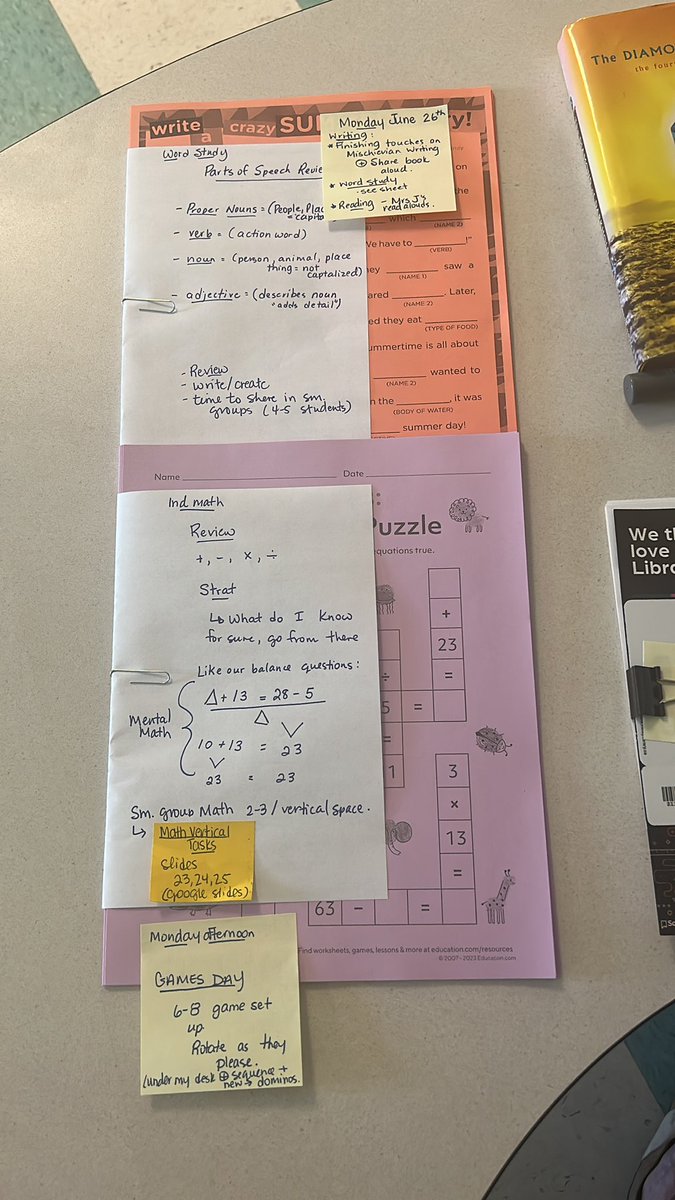 write
a
crazy
SU
y!
Monday June 26th
Writing:
* Finishing touches on
Mischievian Writing
⊕ Share book
aloud.
* Word Study
- see sheet
* Reading - Mrs J's
read alouds.
Word Study
Parts of Speech Revie
- Proper Nouns = (People, Plac
= capita
- verb = (action word)
- noun = (person, animal, place
thing = not
captalized)
- adjective = (describes noun
"adds detail")
- Review
- write/create
- time to share in sm.
groups (4-5 students)
on
the
which
(NAME 2)
We have to ________!"
(VERB)
hey ________ saw a
(NAME 1)
ared ________. Later,
(NAME 2)
ed they eat ________
(TYPE OF FOOD)
ummertime is all about
________ wanted to
(NAME 2)
n the ________, it was
(BODY OF WATER)
summer day!
Name ________ Date ________
Puzzle
equations true.
Ind math
Review
+, -, ×, ÷
Strat
↳ What do I know
for sure, go from there
Like our balance questions:
Mental
Math
Δ + 13 = 28 - 5
Δ
10 + 13 = 23
23 = 23
Sm. group Math 2-3/vertical space.
↳ Math Vertical
Tasks
Slides
23, 24, 25
(Google slides)
+
23
=
÷
5 =
=
1
3
×
13
=
63 - =
Find worksheets, games, lessons & more at education.com/resources
© 2007 - 2023 Education.com
Monday afternoon
GAMES DAY
6-8 game set
up
Rotate as they
please.
(under my desk ⊕ sequence +
new → dominos.
The DIAMO
the four
We th
love
Libra